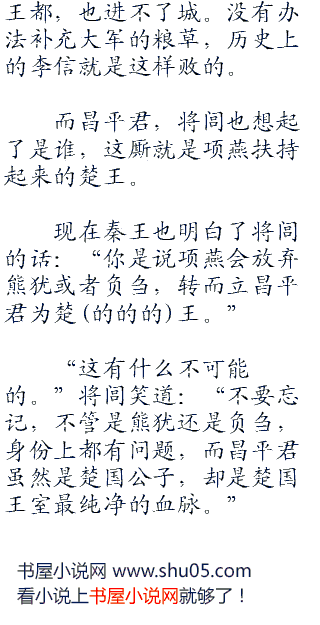 王都，也进不了城。没有办
法补充大军的粮草，历史上
的李信就是这样败的。
而昌平君，将闾也想起
了是谁，这厮就是项燕扶持
起来的楚王。
现在秦王也明白了将闾
的话：“你是说项燕会放弃
熊犹或者负刍，转而立昌平
君为楚(的的的)王。”
“这有什么不可能
的。”将闾笑道：“不要忘
记，不管是熊犹还是负刍，
身份上都有问题，而昌平君
虽然是楚国公子，却是楚国
王室最纯净的血脉。”
书屋小说网 www.shu05.com
看小说上书屋小说网就够了！